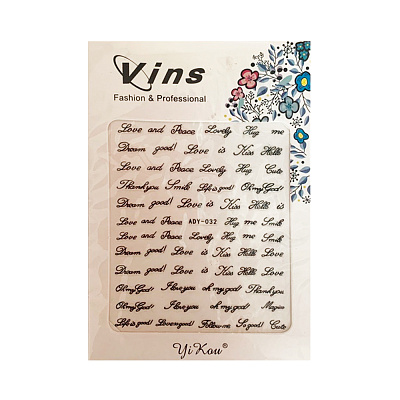 Vins
Fashion & Professional
Love and Peace Lovely Hug me
Dream good! Love is Kiss Hello
Love and Peace Lovely Hug Cute
Thank you Smile Life is good! Oh my God!
Dream good! Love is Kiss Hello is
Love and Peace ADY-032 Hug me Smile
Love and Peace Lovely Hug me Smile
Dream good! Love is Kiss Hello Love
Dream good! Love is Kiss Hello Love
Oh my God! I love you oh my god! Thank you
Oh my God! I love you oh my god!
Life is good! Love good! Follow me So good! Cute
YiKou®